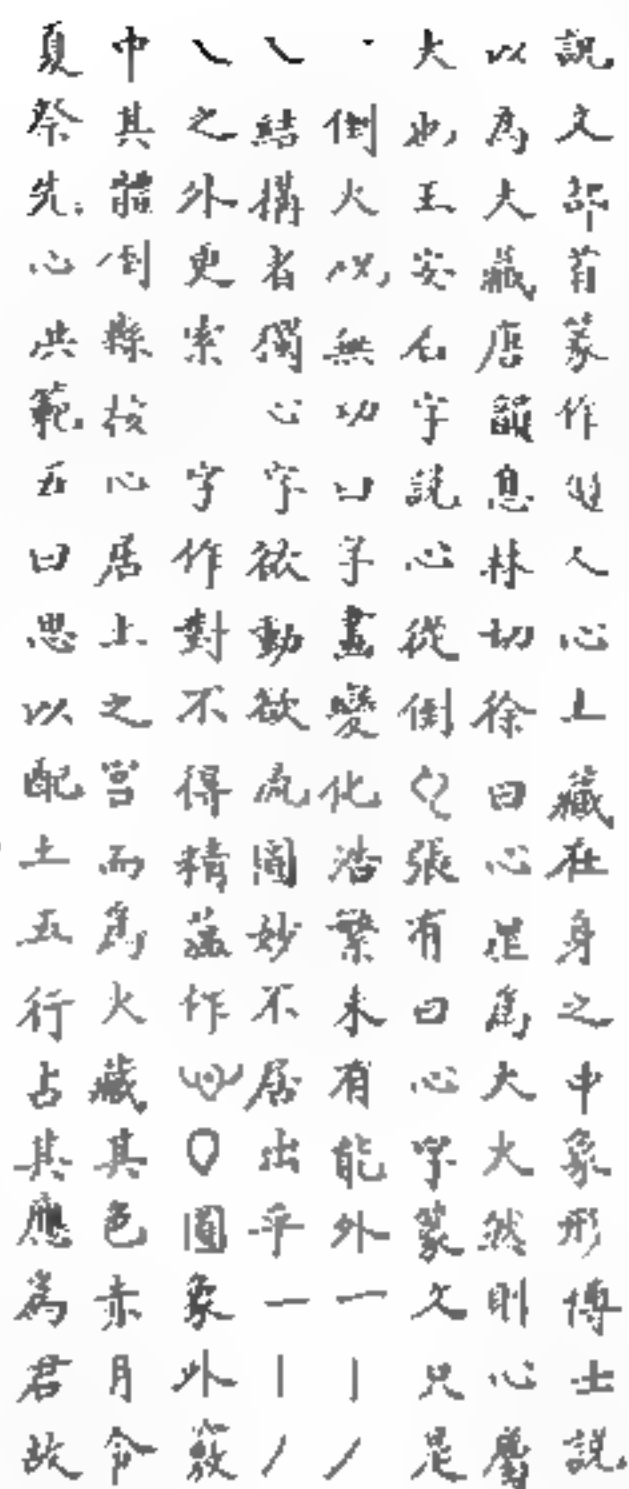 說文部首篆作人心土藏在身之中象形博士說
以為火藏唐韻息林切徐曰心星為大火然則心屬
火也王安石字說心從倒張有曰心字篆文只是
倒火無功曰字畫變化浩繁未有能外一丨丿
乀結構者獨心字欲動欲流圓妙不居出乎一丨丿
乀之外更索字作對不得精蘊作圓象外竅
中其體倒縣按心居上之宮而為火藏其色赤月令
夏祭先心洪範五曰思以配土五行占其應為君故